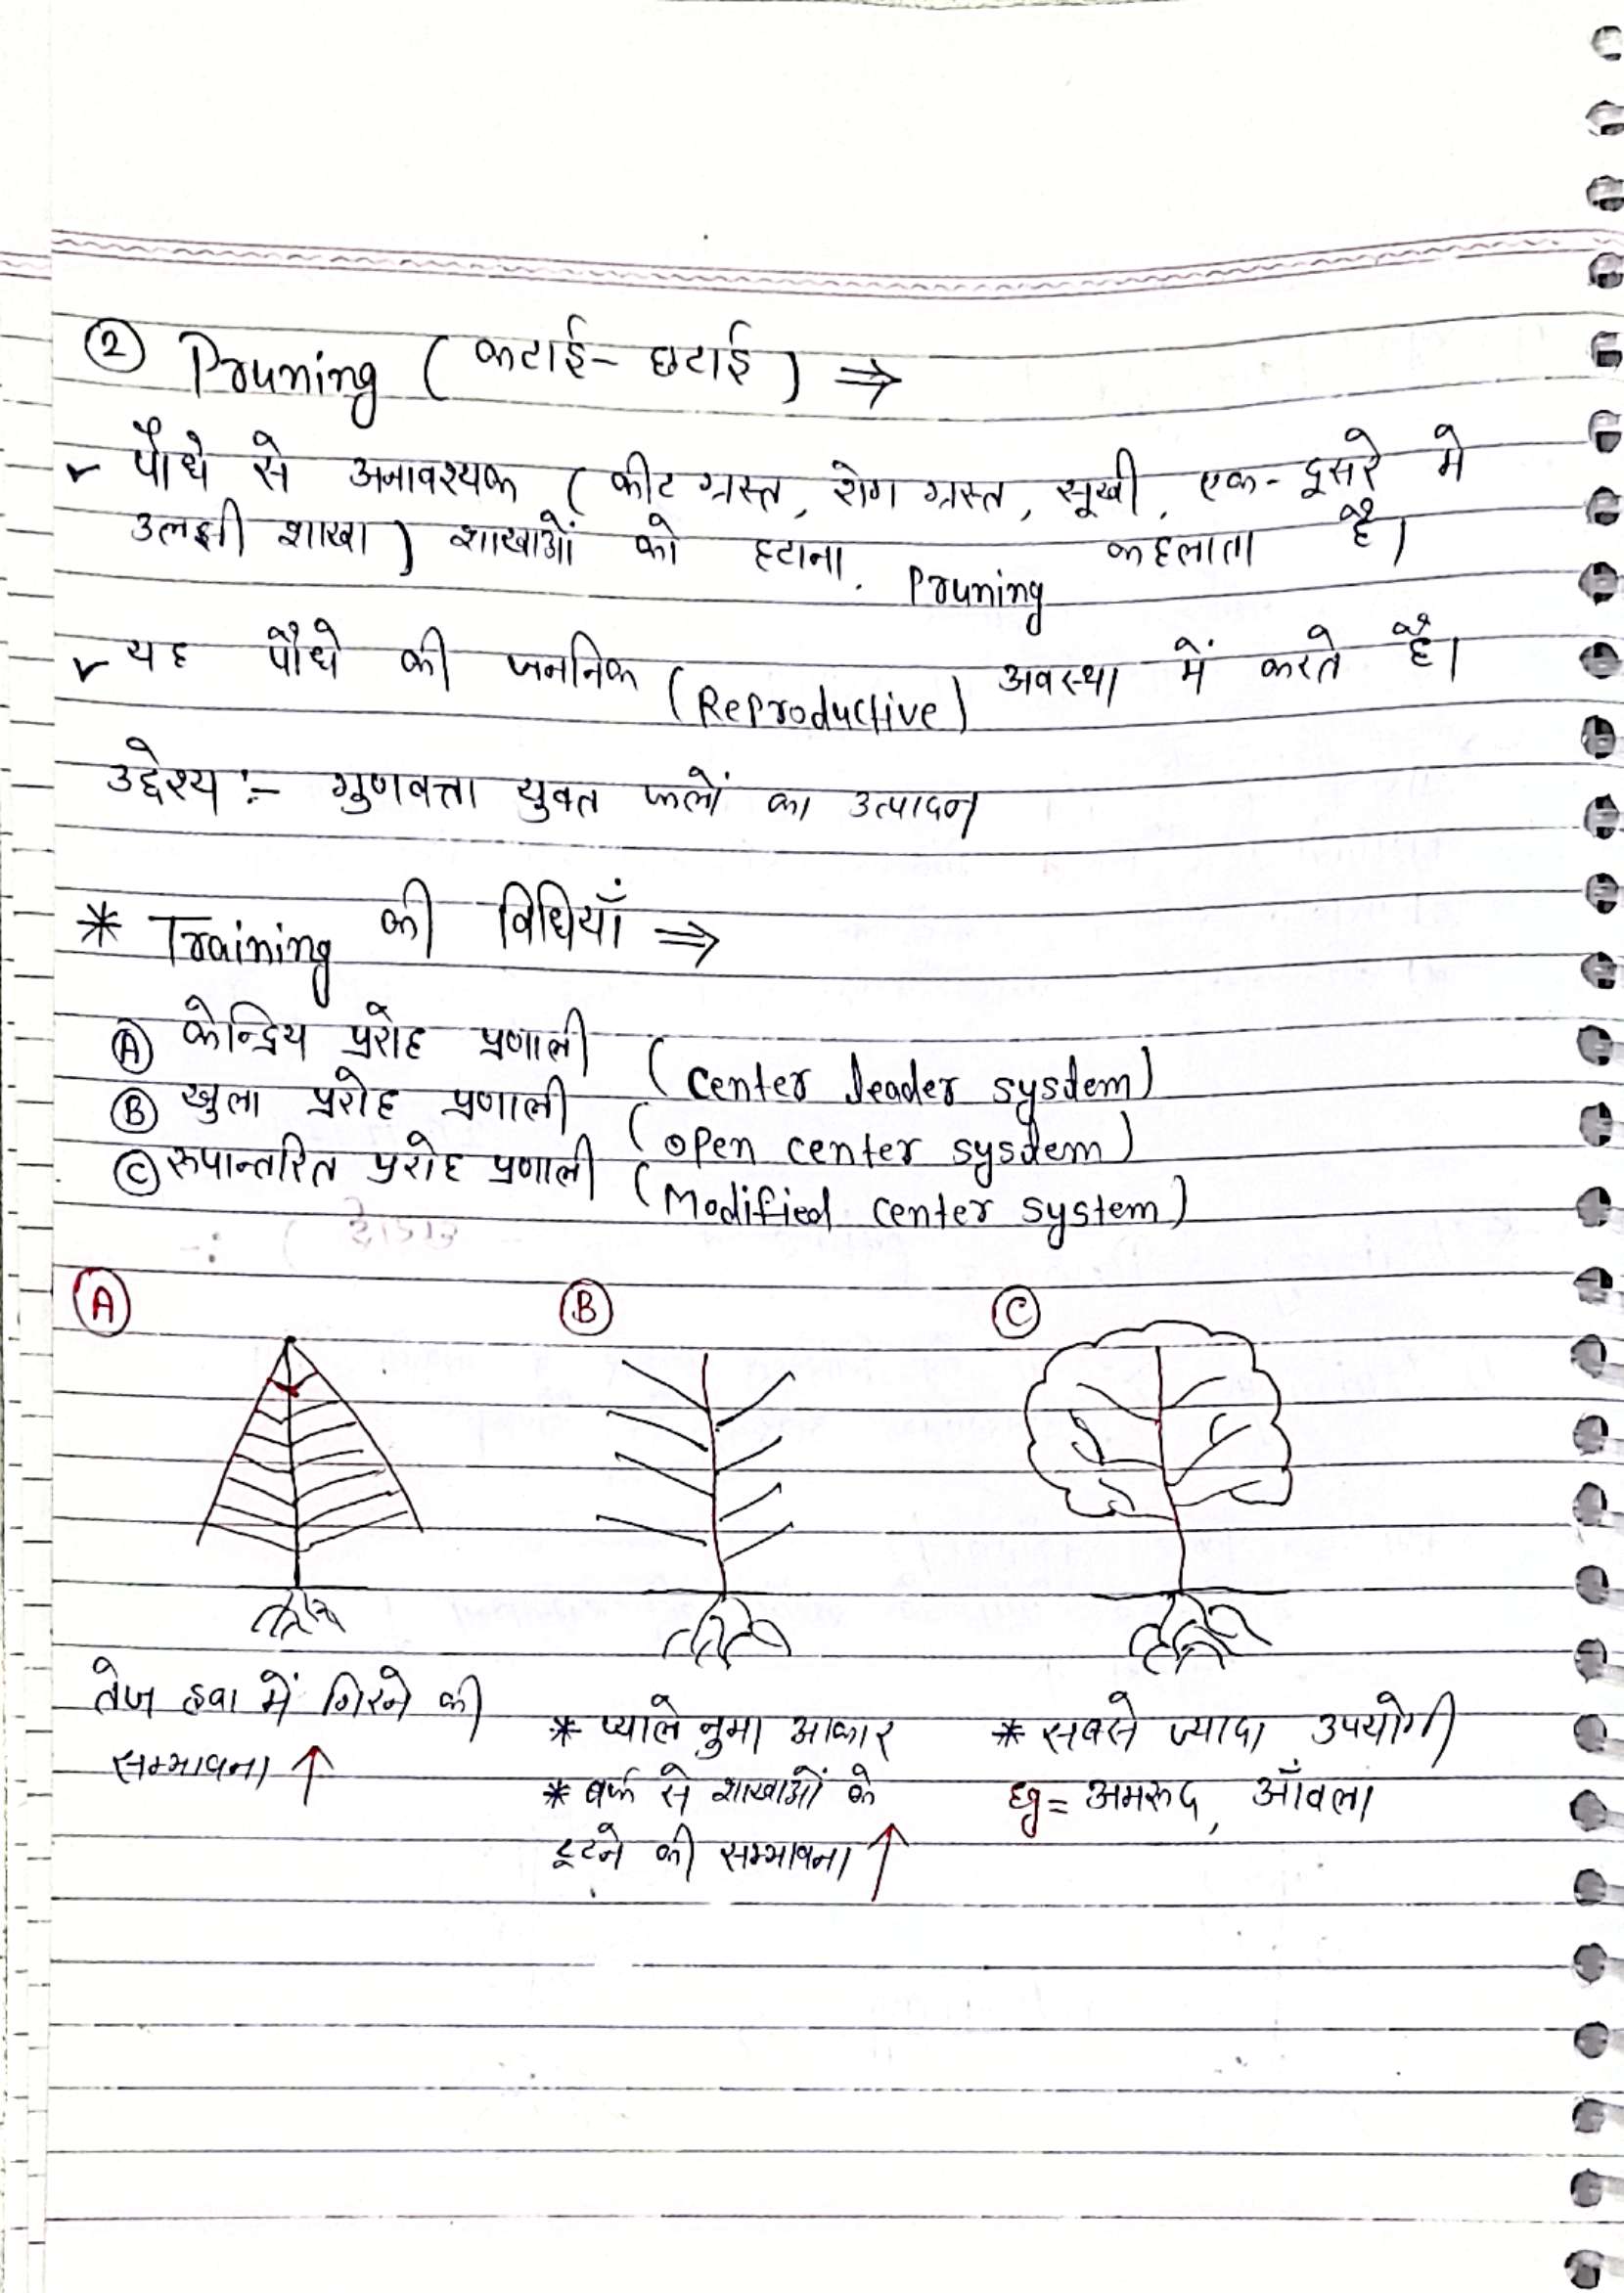 ② Pruning ( कटाई - छटाई ) ⇒
✓ पौधे से अनावश्यक ( कीट ग्रस्त, रोग ग्रस्त, सूखी, एक - दूसरे मे
उलझी शाखा ) शाखाओं को हटाना. Pruning कहलाता है।
✓ यह पौधे की जननिक (Reproductive) अवस्था में करते है।
उद्देश्य :- गुणवत्ता युक्त फलों का उत्पादन
* Training की विधियाँ ⇒
Ⓐ केन्द्रिय प्ररोह प्रणाली ( center leader system )
Ⓑ खुला प्ररोह प्रणाली ( open center system )
Ⓒ रूपान्तरित प्ररोह प्रणाली ( Modified center system )
Ⓐ Ⓑ Ⓒ
तेज हवा में गिरने की
सम्भावना ↑
* प्याले नुमा आकार
* बर्फ से शाखाओं के
टूटने की सम्भावना ↑
* सबसे ज्यादा उपयोगी
Eg = अमरूद, आँवला